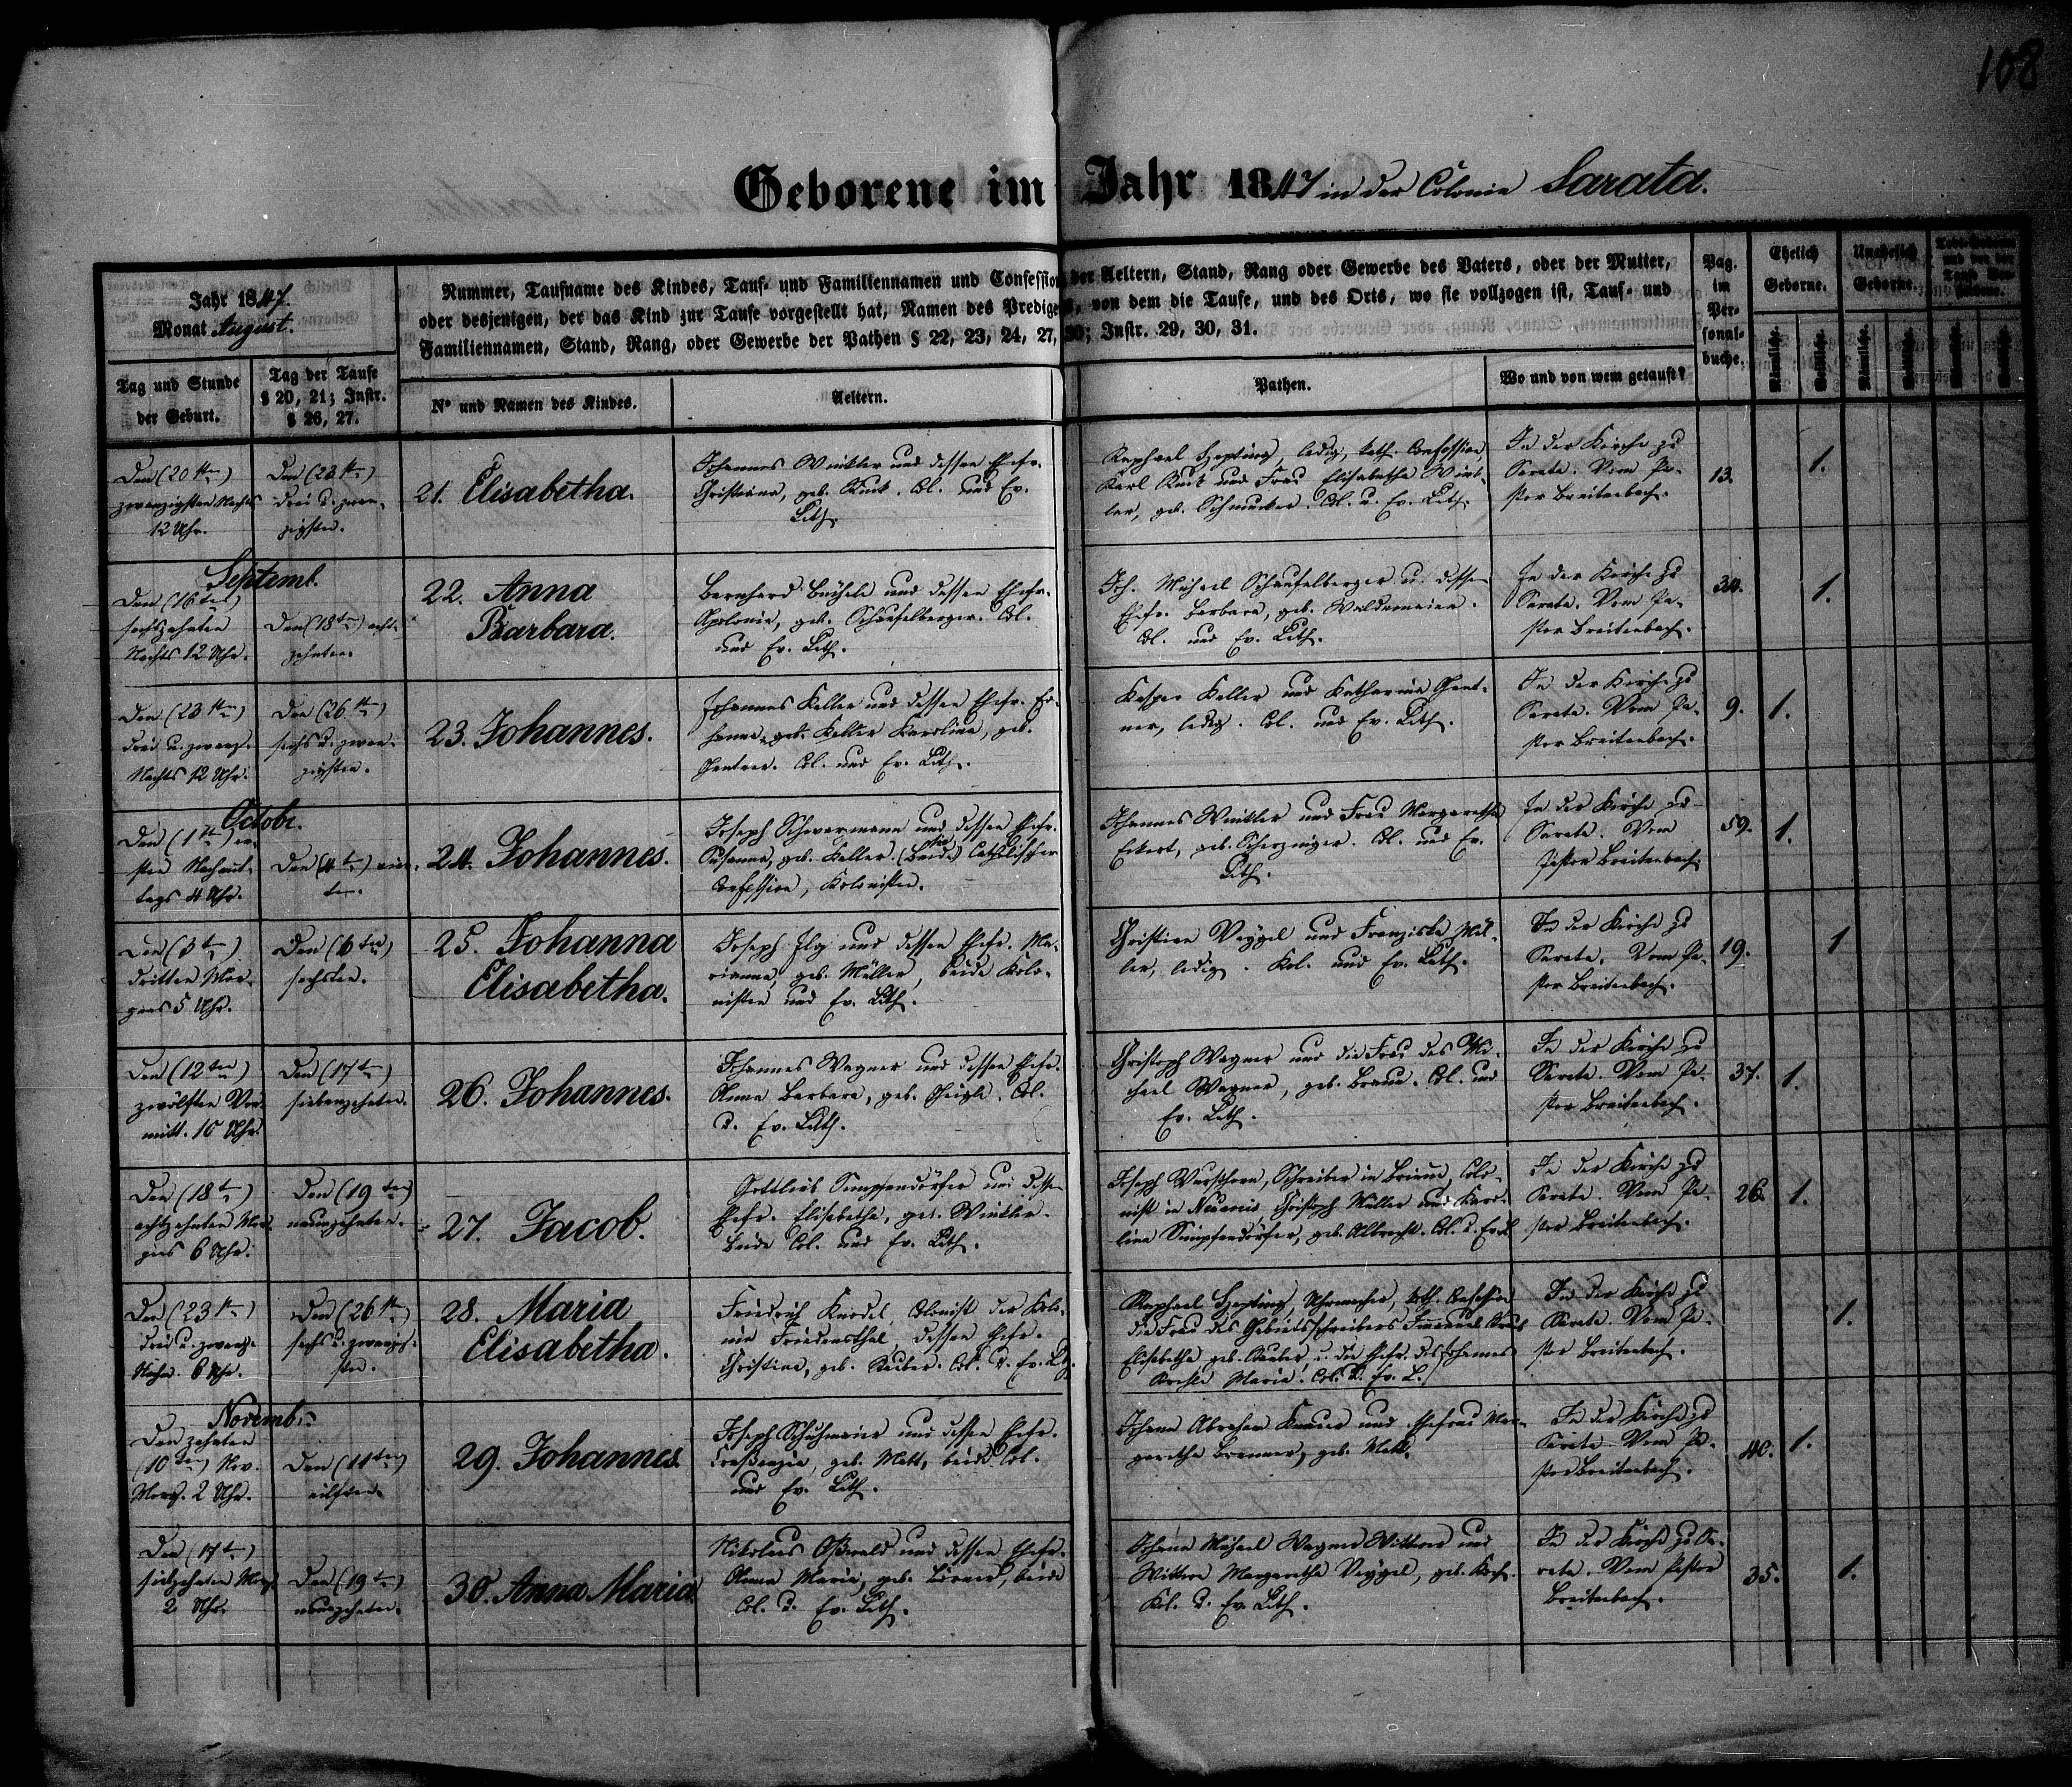 108
Geborene im Jahr 1847 in der Colonie Sarata.
Jahr 1847.
Monat August.
Nummer, Taufname des Kindes, Tauf- und Familiennamen und Confession der Aeltern, Stand, Rang oder Gewerbe des Vaters, oder der Mutter,
oder desjenigen, der das Kind zur Taufe vorgestellt hat, Namen des Predigers, von dem die Taufe, und des Orts, wo sie vollzogen ist, Tauf- und
Familiennamen, Stand, Rang, oder Gewerbe der Pathen § 22, 23, 24, 27, 30; Instr. 29, 30, 31.
Pag.
im
Per-
sonal-
buche.
Ehelich
Geborne.
Unehelich
Geborne.
Tag und Stunde
der Geburt.
Tag der Taufe
§ 20, 21; Instr.
§ 26, 27.
No und Namen des Kindes.
Aeltern.
Pathen.
Wo und von wem getauft?
Männliche.
Weibliche.
Männliche.
Weibliche.
Den (20ten)
zwanzigsten Nachts
12 Uhr.
Den (23ten)
drei u. zwan-
zigsten.
21. Elisabetha.
Johannes Winkler und dessen Ehefr.
Christiana, geb. Kuck. Col. und Ev.
Luth.
Raphael Hepting, ledig, kath. Confession,
Karl Kuck und Frau Elisabetha Wink-
ler, geb. Schmucker. Col. u. Ev. Luth.
In der Kirche zu
Sarata. Vom Pa-
stor Breitenbach.
13.
1.
Septemb.
Den (16ten)
sechszehnten
Nachts 12 Uhr.
Den (18ten) acht-
zehnten.
22. Anna
Barbara.
Bernhard Büchele und dessen Ehefr.
Apolonia, geb. Schaufelberger. Col.
und Ev. Luth.
Joh. Michael Schaufelberger u. dessen
Ehefr. Barbara, geb. Waldenmeier.
Col. und Ev. Luth.
In der Kirche zu
Sarata. Vom Pa-
stor Breitenbach.
34.
1.
Den (23ten)
drei u. zwanz.
Nachts 12 Uhr.
Den (26ten)
sechs u. zwan-
zigsten.
23. Johannes.
Johannes Keller und dessen Ehefr. Jo-
hanna, geb. Keller Karolina, geb.
Gentner. Col. und Ev. Luth.
Kaspar Keller und Katharina Gent-
ner, ledig. Col. und Ev. Luth.
In der Kirche zu
Sarata. Vom Pa-
stor Breitenbach.
9.
1.
Octobr.
Den (1ten) er-
sten Nachmit-
tags 4 Uhr.
Den (4ten) vier-
ten.
24. Johannes.
Joseph Schwarzmann und dessen Ehefr.
Susanna, geb. Keller. (Beide) Catholischer
Confession, Kolonisten.
Johannes Winkler und Frau Margaretha
Eckert, geb. Scherzinger. Col. und Ev.
Luth.
In der Kirche zu
Sarata. Vom
Pastor Breitenbach.
59.
1.
Den (3ten)
dritten Mor-
gens 5 Uhr.
Den (6ten)
sechsten.
25. Johanna
Elisabetha.
Joseph Ilg und dessen Ehefr. Ma-
rianna, geb. Müller, beide Kolo-
nisten und Ev. Luth.
Christian Veygel und Franziska Mül-
ler, ledig. Kol. und Ev. Luth.
In der Kirche zu
Sarata. Vom Pa-
stor Breitenbach.
19.
1
Den (12ten)
zwölften Vor-
mitt. 10 Uhr.
Den (17ten)
siebenzehnten.
26. Johannes.
Johannes Wagner und dessen Ehefr.
Anna Barbara, geb. Geigle. Col.
u. Ev. Luth.
Christoph Wagner und die Frau des Mi-
chael Wagner, geb. Braun. Col. und
Ev. Luth.
In der Kirche zu
Sarata. Vom Pa-
stor Breitenbach.
37.
1.
Den (18ten)
achtzehnten Mor-
gens 6 Uhr.
Den (19ten)
neunzehnten.
27. Jacob.
Gottlieb Simpfendörfer und dessen
Ehefr. Elisabetha, geb. Winkler.
Beide Col. und Ev. Luth.
Joseph Wurschorn, Schreiber in Brienne, Colo-
nist in Neuarcis, Christoph Müller und Karo-
lina Simpfendörfer, geb. Albrecht. Col. u. Ev. L.
In der Kirche zu
Sarata. Vom Pa-
stor Breitenbach.
26.
1.
Den (23ten)
drei u. zwanz.
Nachm. 6 Uhr.
Den (26ten)
sechs u. zwanzig-
sten.
28. Maria
Elisabetha.
Friedrich Knodel, Colonist der Kolo-
nie Friedensthal, dessen Ehefr.
Christine, geb. Däuber. Col. u. Ev. L.
Raphael Hepting, Uhrmacher, kath. Confession
die Frau des Gebietsschreibers Immanuel
Elisabetha, geb. Däuber, u. die Ehefr. des Johannes
Maria. Col. u. Ev. L.
In der Kirche zu
Sarata. Vom Pa-
stor Breitenbach.
1.
Novemb.
Den zehnten
(10ten) Nov.
Morg. 2 Uhr.
Den (11ten)
eilften.
29. Johannes.
Joseph Schuhmaier und dessen Ehefr.
Creszenzia, geb. Mett, beide Col.
und Ev. Luth.
Johann Abraham Knauer und Ehefrau Mar-
garetha Brenner, geb. Mett.
In der Kirche zu
Sarata. Vom Pa-
stor Breitenbach.
40.
1.
Den (17ten)
siebzehnten Morg.
2 Uhr.
Den (19ten)
neunzehnten.
30. Anna Maria.
Nikolaus Oßwald und dessen Ehefr.
Anna Maria, geb. Börner, beide
Col. u. Ev. Luth.
Johann Michael Wagner Wittwer und
Wittwe Margaretha Veygel, geb. Koch.
Kol. u. Ev. Luth.
In der Kirche zu Sa-
rata. Vom Pastor
Breitenbach.
35.
1.